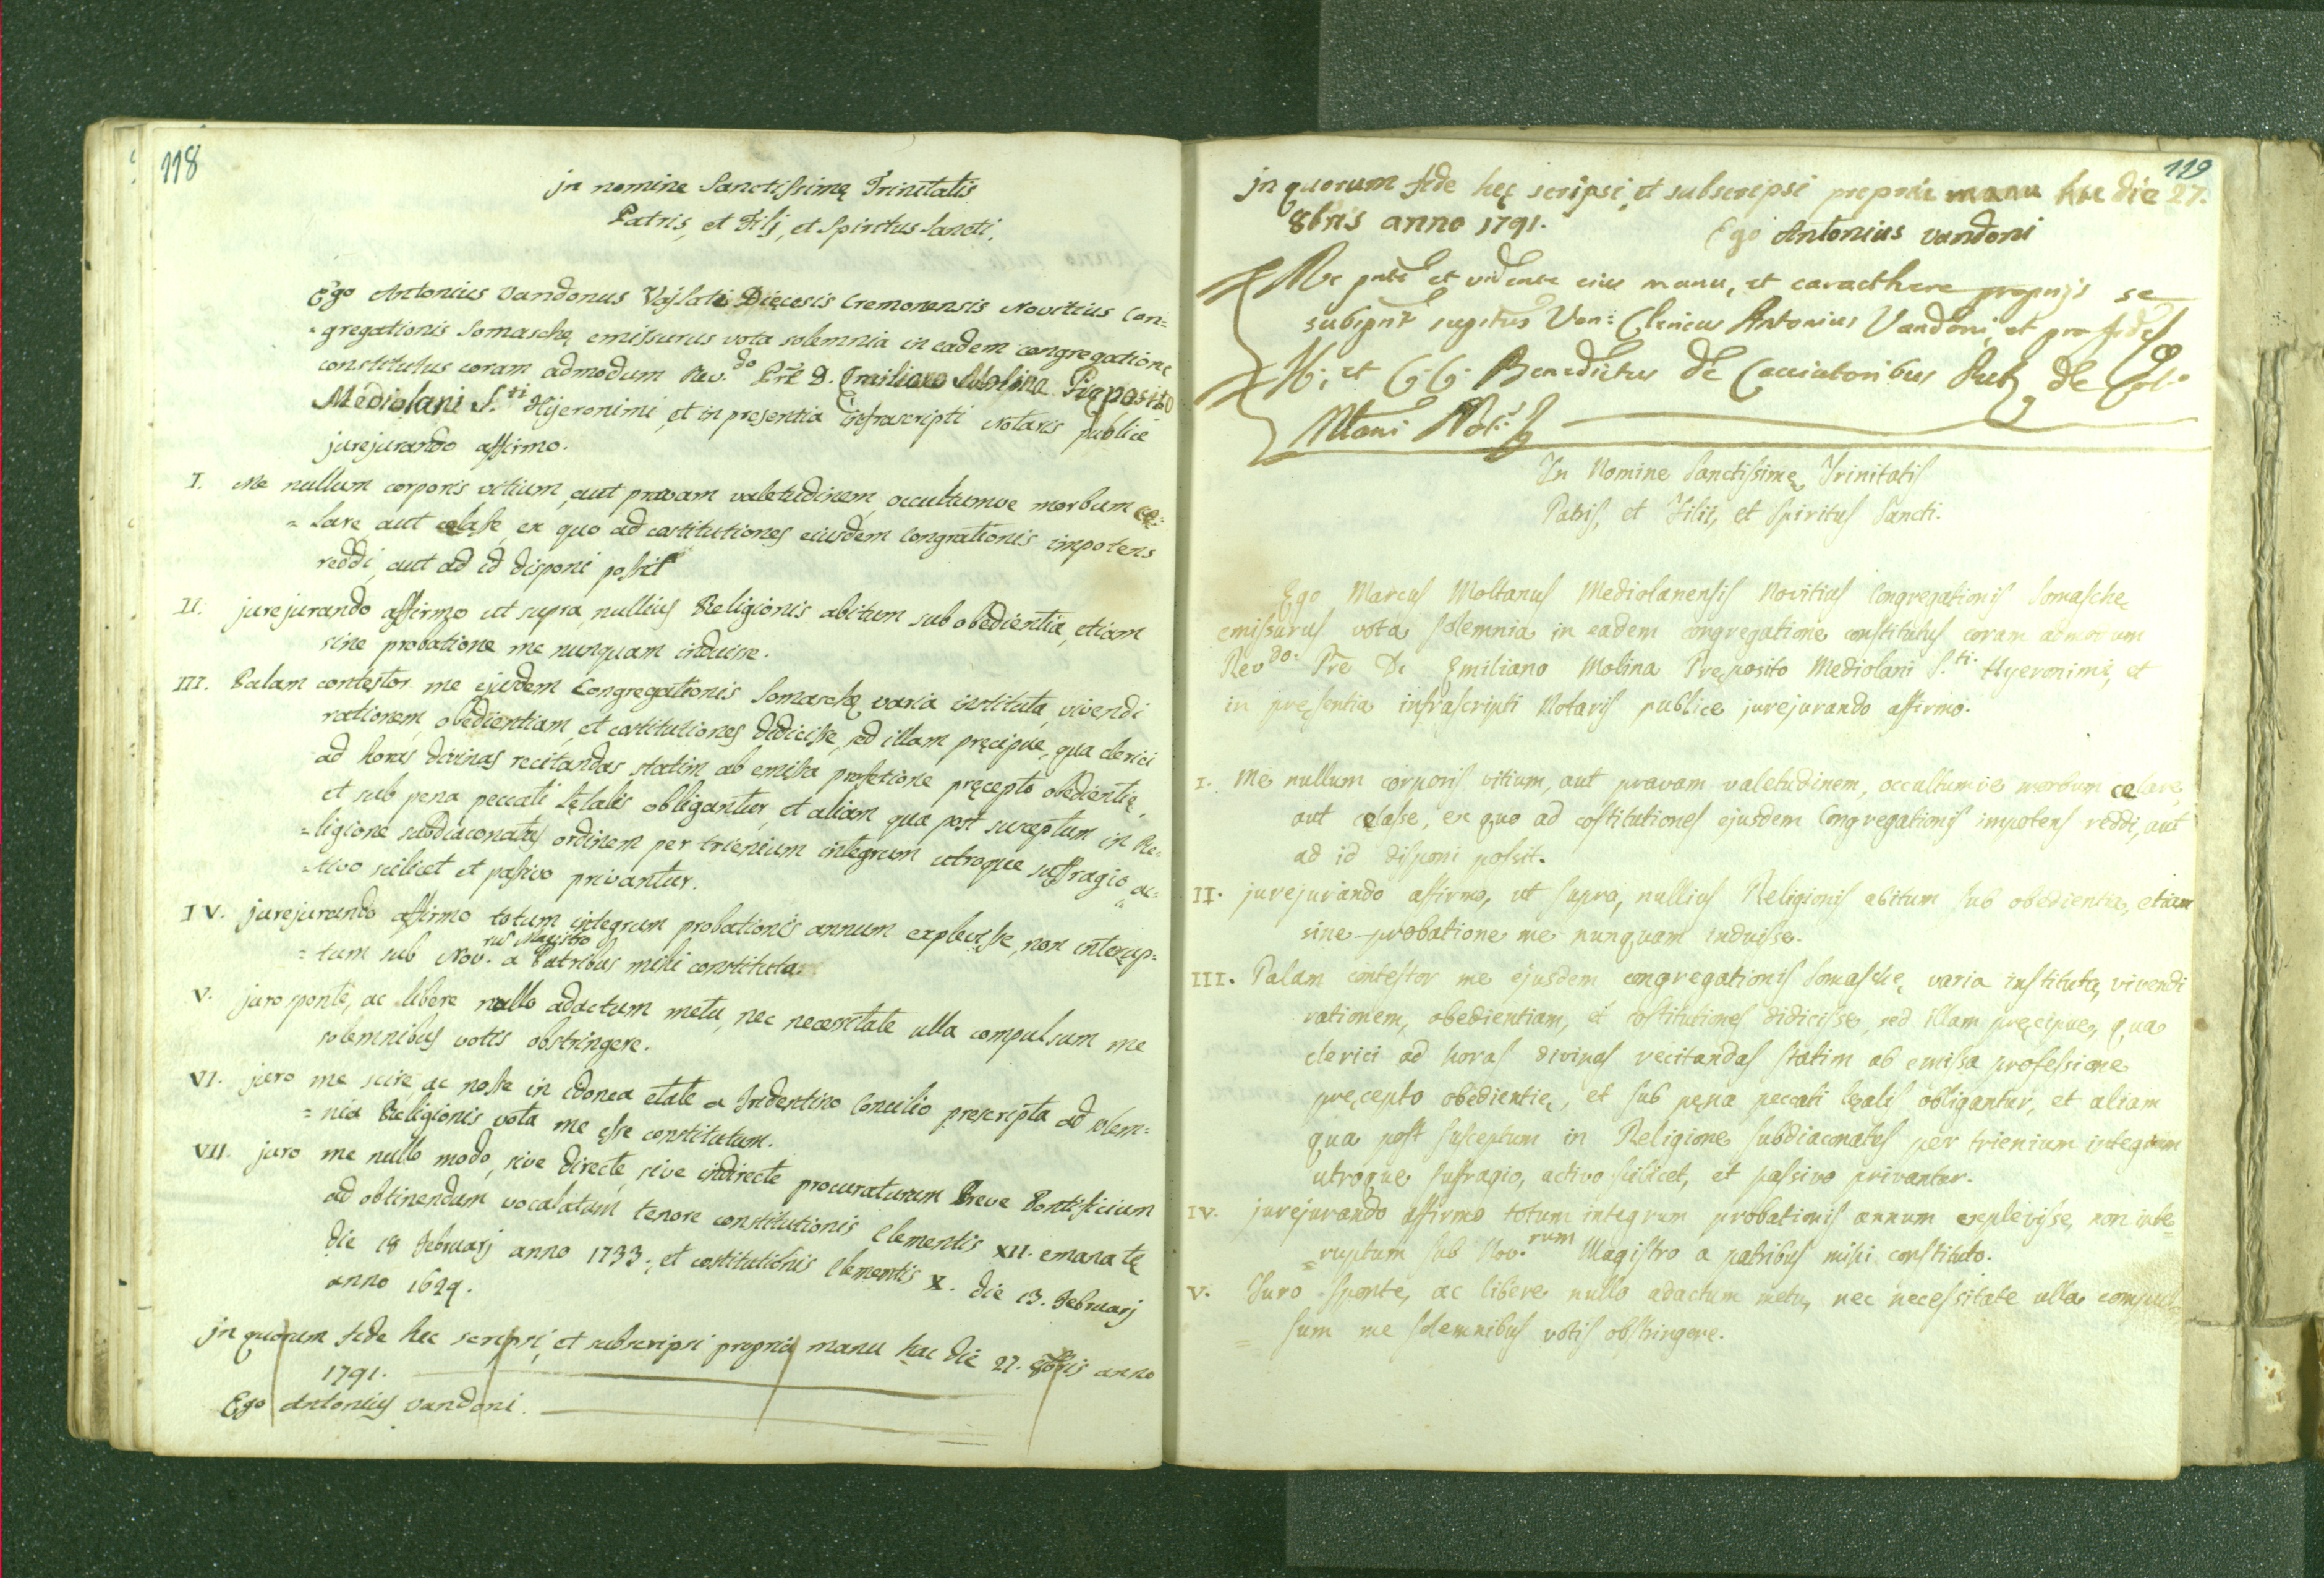 118
jn nomine Sanctissimę Trinitatis
Patris, et Filj, et Spiritus Sancti.
Ego Antonius Vandonus Vajlati Dięcesis Cremonensis Novitius Con=
=gregationis Somaschę emissurus vota solemnia in eadem congregatione
constitutus coram admodum Rev.do Prē D. Emiliano Molina Pręposito
Mediolani S.ti Hijeronimi, et in presentia infrascripti Notaris publice
jurejurando affirmo.
I. Me nullum corporis vitium, aut pravam valetudinem, occultumve morbum ce=
=lare aut celasse, ex quo ad costitutiones eiusdem Congrationis impotens
reddi, aut ad id disponi possit
II. jurejurando affirmo ut supra, nullius Religionis abitum sub obedientia, etiam
sine probatione me nunquam induisse.
III. Palam contestor me ejusdem Congregationis Somaschę varia instituta, vivendi
rationem, obedientiam, et costitutiones didicisse, sed illam pręcipue, qua clerici
ad horas divinas recitandas statim ab emissa profetione pręcepto obedientię,
et sub pena peccati lętalis obligantur, et aliam qua post susceptum in Re=
=ligione subdiaconatus ordinem per trienium integrum utroque suffragio ac=
=tivo scilicet et passivo privantur.
IV. jurejurando affirmo totum integrum probationis annum explevisse, non interup=
=tum sub Nov.rus Magistro a Patribus mihi constituta
V. juro sponte, ac libere nullo adactum metu, nec necessitate ulla compulsum me
solemnibus votis obstringere.
VI. juro me scire ac nosse in idonea etate a Tridentino Concilio prescripta ad solem=
=nia Religionis vota me esse constitutum.
VII. juro me nullo modo, sive directe, sive indirecte procuraturum Breve Pontificium
ad obtinendum vocalatum tenore constitutionis Clementis XII. emanatę
die 18 Februarj anno 1733., et costitutionis Clementis X. die 13. Februarj
anno 1629.
jn quorum fede hec scripsi, et subscripsi propria manu hac die 27. 8bris anno
1791.
Ego Antonius Vandoni.
119
jn quorum fede hęc scripsi, et subscripsi propria manu hac die 27.
8bris anno 1791. Ego Antonius Vandoni
Me pnte et vidente eius manu, et caracthere proprijs se
subspnt suprtus Ven: Clericus Antonius Vandoni, et pro fide
Benedictus de Cacciatoribus de
In Nomine Sanctissimę Trinitatis
Patris, et Filii, et Spiritus Sancti.
Ego Marcus Moltanus Mediolanensis Novitius Congregationis Somaschę
emissurus vota solemnia in eadem congregatione constitutus coram admodum
Rev.do: Prē De Emiliano Molina Pręposito Mediolani S.ti. Hyeronimi, et
in pręsentia infrascripti Notaris publice jurejurando affirmo.
I. Me nullum corporis vitium, aut pravam valetudinem, occultumve morbum celare,
aut celasse, ex quo ad costitutiones ejusdem Congregationis impotens reddi, aut
ad id disponi possit.
II. jurejurando affirmo, ut supra, nullius Religionis abitum sub obedientia, etiam
sine probatione me nunquam induisse.
III. Palam contestor me ejusdem congregationis Somaschę, varia instituta, vivendi
rationem, obedientiam, et costitutiones didicisse, sed illam pręcipue, qua
clerici ad horas divinas recitandas statim ab emissa professione
pręcepto obedientię, et sub pęna peccati lęalis obligantur, et aliam
qua post susceptum in Religione subdiaconatus per trienium integrum
utroque sufragio, activo scilicet, et passivo privantur.
IV. jurejurando affirmo totum integrum probationis annum explevisse, non inte
=ruptum sub Nov.rum Magistro a patribus mihi constituto.
V. Juro sponte, ac libere nullo adactum metu, nec necessitate ulla compul
=sum me solemnibus votis obstringere.